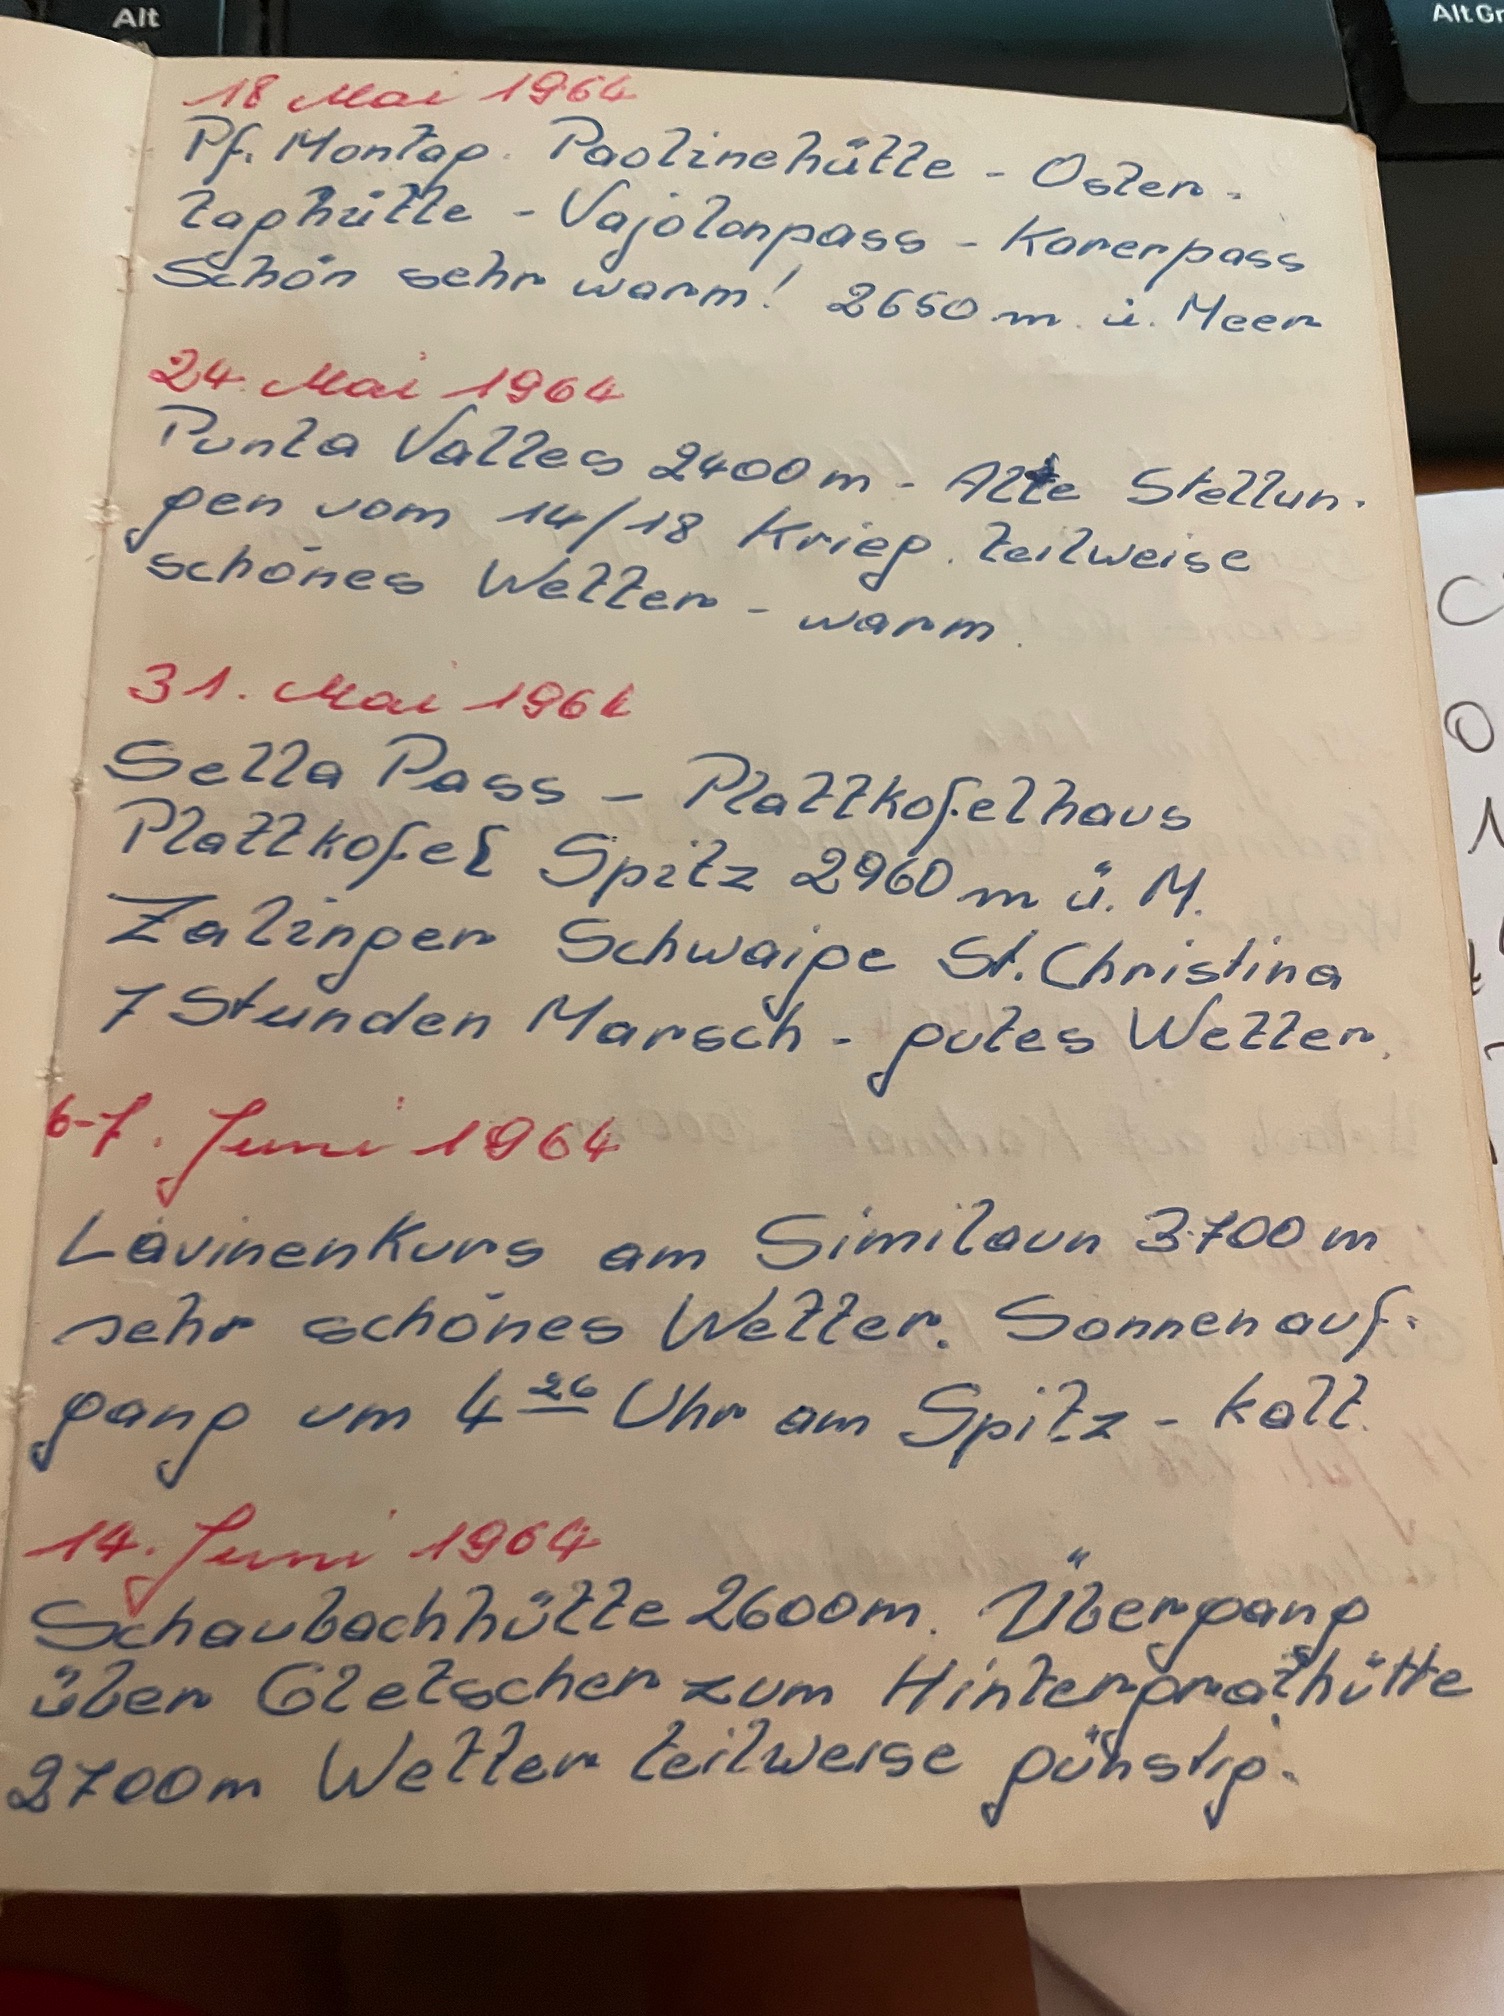 Alt
Alt Gr
18 Mai 1964
Pf. Montag. Paolinehütte - Oster-
taghütte - Vajolonpass - Karerpass
Schön sehr warm! 2650 m. ü. Meer
24. Mai 1964
Punta Valles 2400 m - Alte Stellun-
gen vom 14/18 Krieg. teilweise
schönes Wetter - warm.
31. Mai 1964
Sella Pass - Plattkofelhaus
Plattkofel Spitz 2960 m ü. M.
Zalinger Schwaige St. Christina
7 Stunden Marsch - gutes Wetter.
6-7. Juni 1964
Lavinenkurs am Similaun 3700 m
sehr schönes Wetter. Sonnenauf-
gang um 4 26 Uhr am Spitz - kalt.
14. Juni 1964
Schaubachhütte 2600 m. Übergang
über Gletscher zum Hintergrathütte
2700 m Wetter teilweise günstig.